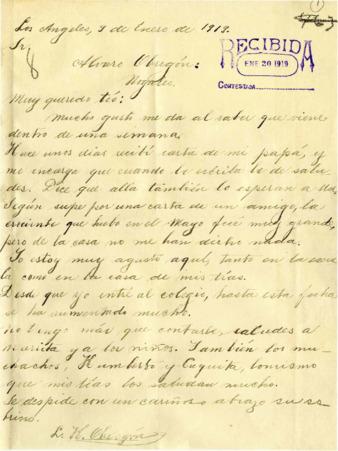 Los Angeles, 9 de Enero de 1919.
RECIBIDA
ENE 20 1919
CONTESTADA
Sr.
8
Alvaro Obregón:
Nogales.
Muy querido tío:
Mucho gusto me da al saber que viene
dentro de una semana.
Hace unos días recibí carta de mi papá, y
me encarga que cuando le escriba le de salu-
des. Dice que alla también lo esperan a
Según supe por una carta de un amigo, la
creciente que hubo en el Mayo fué muy grande,
pero de la casa no me han dicho nada.
Yo estoy muy agusto aquí, tanto en la escue
la como en la casa de mis tías.
Desde que yo entré al colegio, hasta esta fecha
se ha aumentado mucho.
No tengo más que contarle, saludes a
María y a los niños. También los mu-
chachos, Humberto y Cuquita, lo mismo
que mis tías los saludan mucho.
Se despide con un cariñoso abrazo su so-
brino.
Obregón